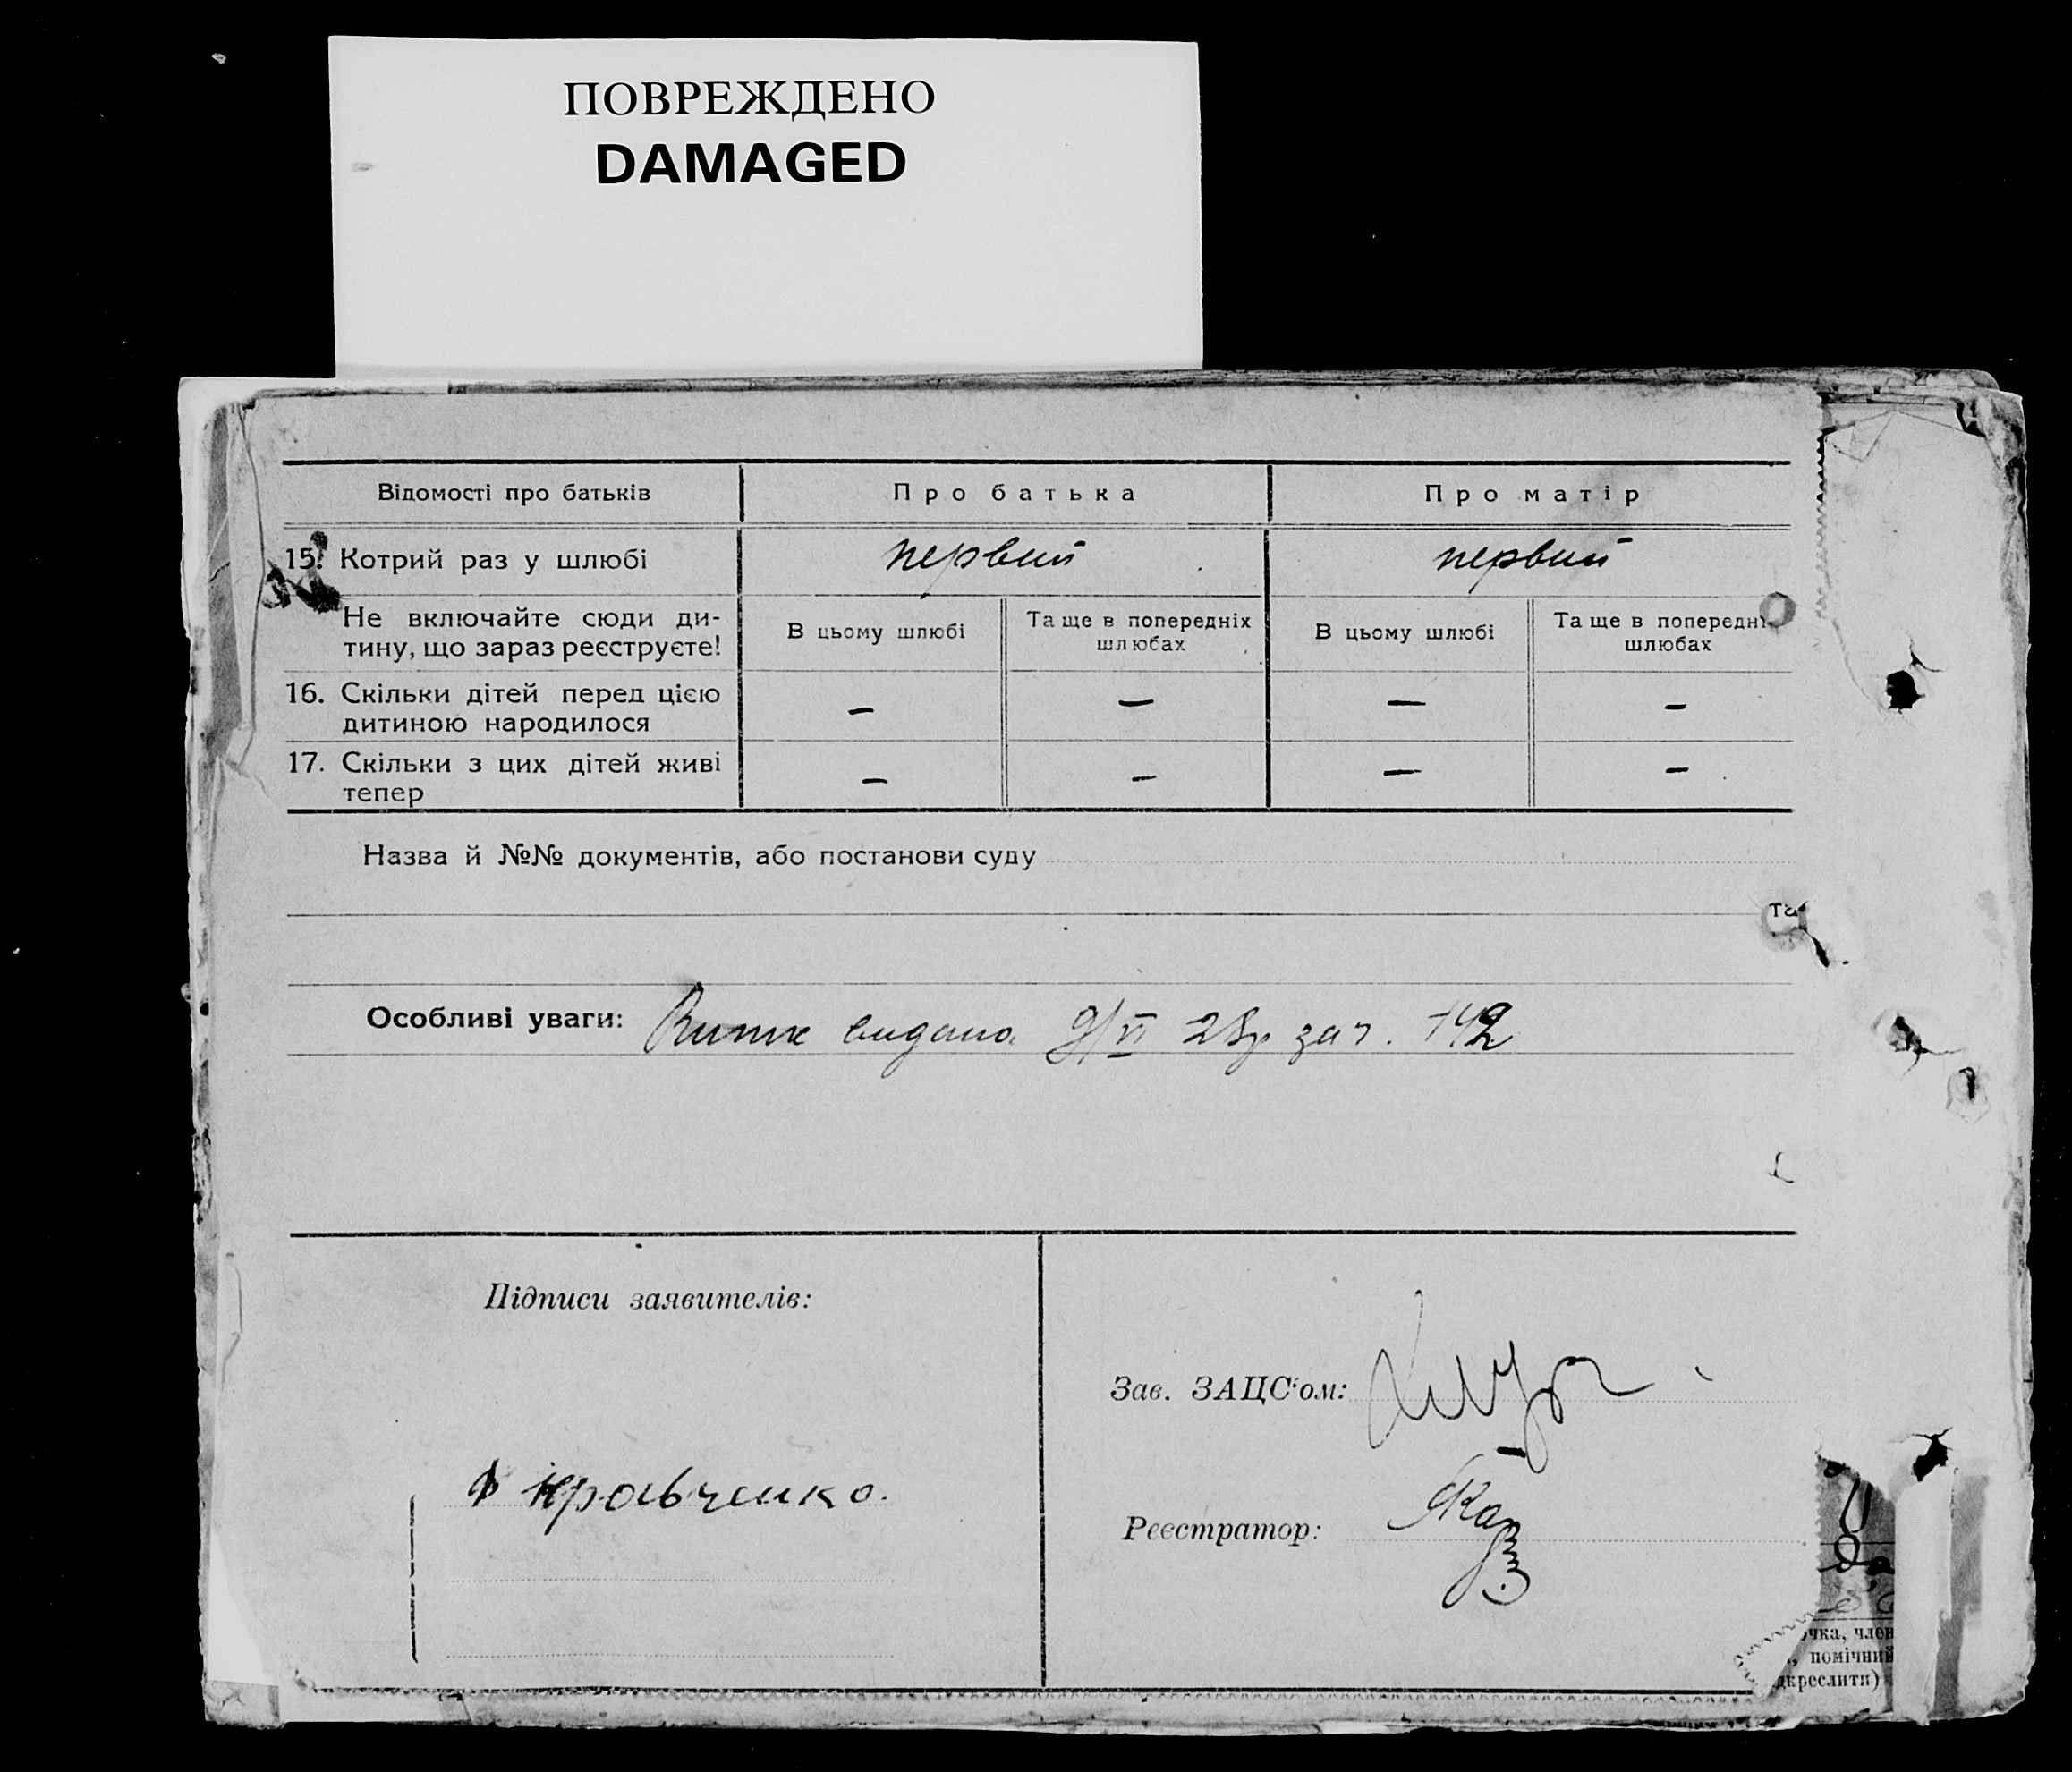 ПОВРЕЖДЕНО
DAMAGED
Відомості про батьків
Про батька
Про матір
15. Котрий раз у шлюбі
первий
первий
Не включайте сюди ди-
тину, що зараз реєструєте!
В цьому шлюбі
Та ще в попередніх
шлюбах
В цьому шлюбі
Та ще в попередні
шлюбах
16. Скільки дітей перед цією
дитиною народилося
— — — —
17. Скільки з цих дітей живі
тепер
— — — —
Назва й №№ документів, або постанови суду
та
Особливі уваги: Витяг видано 9/VI 28р за ч. 142
Підписи заявителів:
Зав. ЗАЦС'ом:
Кравченко.
Реєстратор:
очка, член
помічний
дкреслити)